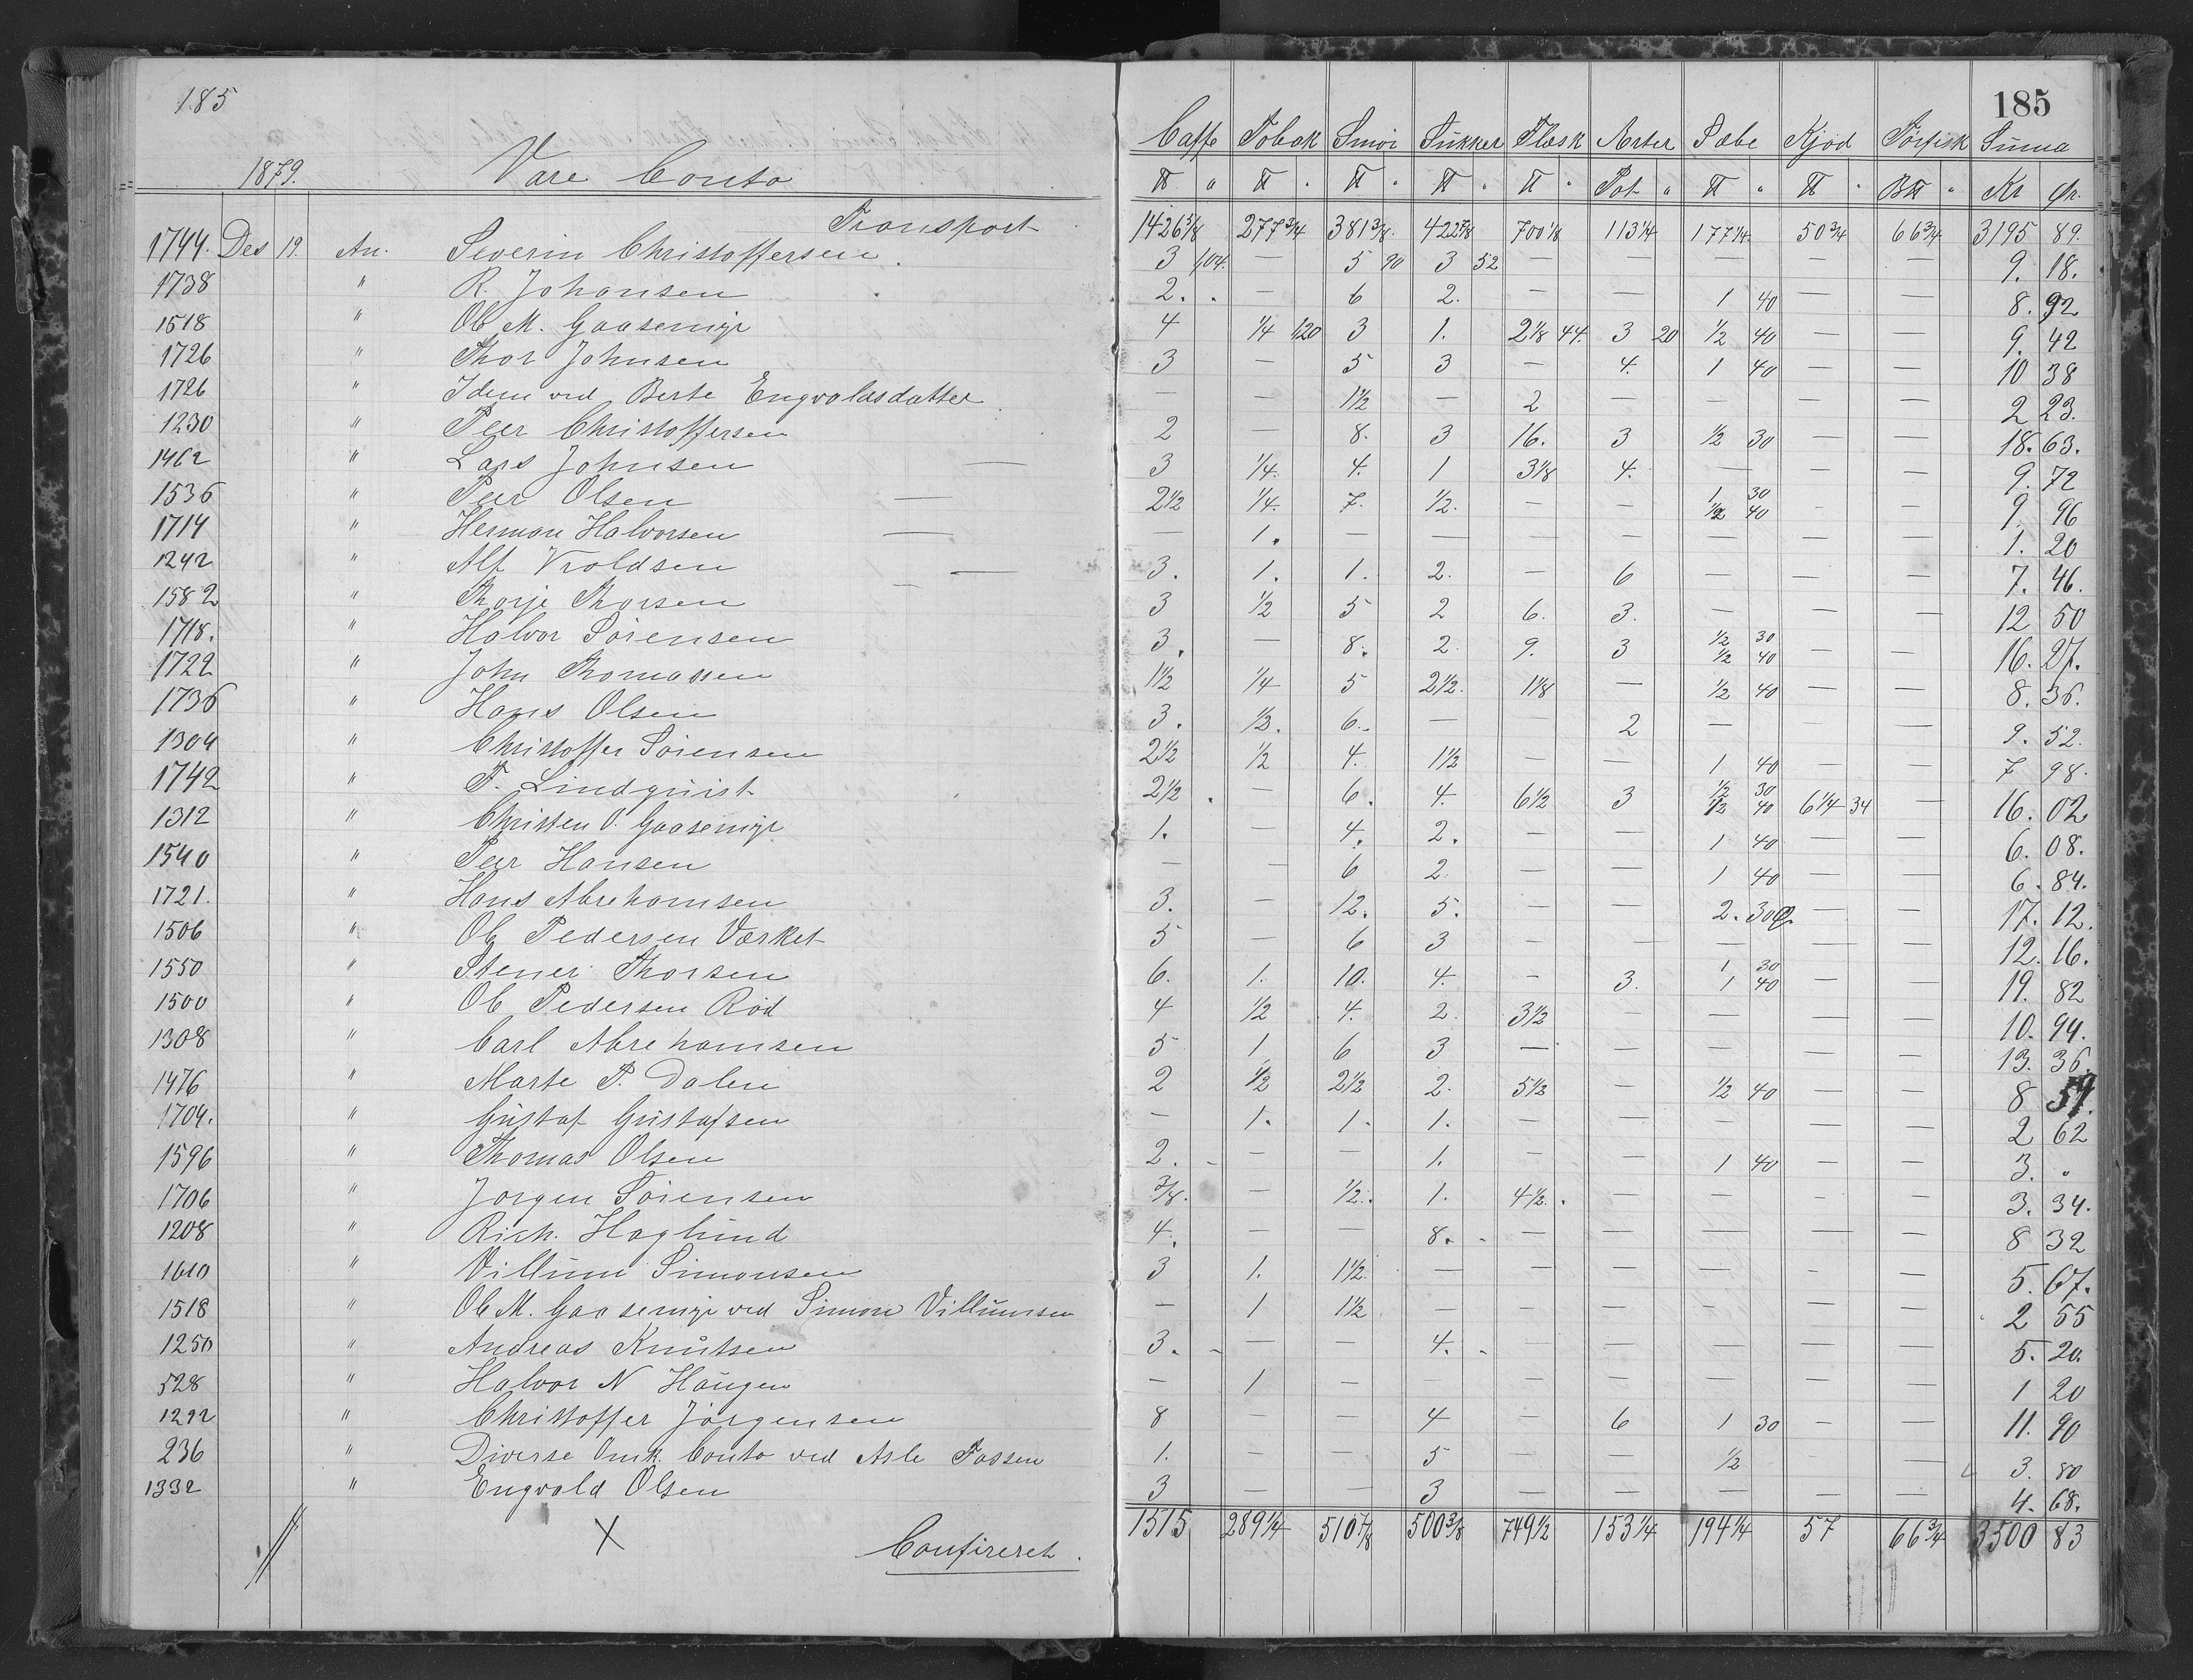 185
1879. Vare Conto
Transport
1744. Des 19. An. Severin Christoffersen.
1738 " R. Johansen
1518 " Ole M. Gaasemyr
1726 " Thor Johnsen
1726 " Idem ved Berte Engvoldsdatter
1230 " Peer Christoffersen
1462 " Lars Johnsen —
1536 " Peer Olsen —
1714 " Herman Halvorsen —
1242 " Alf Vroldsen —
1582 " Thorje Thorsen —
1718. " Halvor Sörensen
1722 " John Thomassen
1736 " Hans Olsen
1304 " Christoffer Sörensen
1742 " F. Lindquist
1312 " Christen O. Gaasemyr
1540 " Peer Hansen
1721. " Hans Abrehamsen
1506 " Ole Pedersen Værket
1550 " Stener Thorsen
1500 " Ole Pedersen Röd
1308 " Carl Abrehamsen
1476 " Marte P. Dalen
1704. " Gustaf Gustafsen
1596 " Thomas Olsen
1706 " Jörgen Sörensen
1208 " Rich. Haglund
1610 " Villum Simonsen
1518 " Ole M. Gaasemyr ved Simon Villumsen
1250 " Andreas Knutsen
528 " Halvor N Haugen
1292 " Christoffer Jörgensen
236 " Diverse Omk. Conto ved Asle Fossen
1332 " Engvald Olsen
X Confireret.
185
Caffe Tobak Smör Sukker Flæsk Arter Sæbe Kjöd Törfisk Suma
℔ " ℔ " ℔ " ℔ " ℔ " Pot " ℔ " ℔ " B℔ " Kr Ör.
1426 5/8 277 3/4 381 3/8 422 7/8 700 1/8 113 1/4 177 1/4 50 3/4 66 3/4 3195 89.
3 104. — 5 90 3 52 — — — — — 9. 18.
2. — 6 2. — — 1 40 — — 8. 92
4 1/4 120 3 1. 2 1/8 44. 3 20 1/2 40 — — 9. 42
3 — 5 3 — 4. 1 40 — — 10 38
— — 1 1/2 — 2 — — — — 2 23.
2 — 8. 3 16. 3 1/2 30 — — 18. 63.
3 1/4. 4. 1 3 1/8 4. — — — 9. 72
2 1/2 1/4. 7. 1/2. — — 1 30 1/2 40 — — 9. 96
— 1. — — — — — — — 1. 20
3. 1. 1. 2. — 6 — — — 7. 46.
3 1/2 5 2 6. 3. — — — 12 50
3. — 8. 2. 9. 3 1/2 30 1/2 40 — — 16. 27.
1 1/2 1/4 5 2 1/2. 1 1/8 — 1/2 40 — — 8. 36.
3. 1/2. 6. — — 2 — — — 9. 52.
2 1/2 1/2 4. 1 1/2 — — 1 40 — — 7 98.
2 1/2. — 6. 4. 6 1/2 3 1/2 30 1/2 40 6 1/4 34 — 16. 02
1. — 4. 2. — — 1 40 — — 6. 08.
— — 6 2. — — 1 40 — — 6. 84.
3. — 12. 5. — — 2. 30 — — 17. 12.
5 — 6 3 — — — — — 12. 16.
6. 1. 10. 4. — 3. 1 30 1 40 — — 19. 82
4 1/2 4. 2. 3 1/2 — — — — 10. 94.
5 1 6 3 — — — — — 13. 36.
2 1/2 2 1/2 2. 5 1/2 — 1/2 40 — — 8 59.
— 1. 1. 1. — — — — — 2 62
2. — — 1. — — 1 40 — — 3. "
3/8. — 1/2. 1. 4 1/2. — — — — 3. 34.
4. — — 8. — — — — — 8 32
3 1. 1 1/2. — — — — — — 5. 67.
— 1 1 1/2 — — — — — — 2 55
3. — — 4. — — — — — 5. 20.
— 1 — — — — — — — 1 20
8 — — 4 — 6 1 30 — — 11. 90
1. — — 5 — — 1/2 — — 3. 80
3 — — 3 — — — — — 4. 68.
1515 289 1/4 510 7/8 500 3/8 749 1/2 153 1/4 194 1/4 57 66 3/4 3500 83